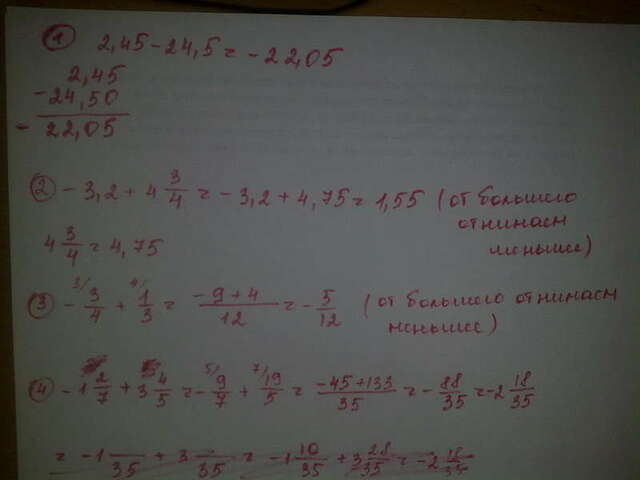 ① 2,45 - 24,5 = - 22,05
2,45
- 24,50
- 22,05
② - 3,2 + 4 3/4 = - 3,2 + 4,75 = 1,55 (от большего
отнимаем
меньшее)
4 3/4 = 4,75
③ - 3/4 + 1/3 = (-9+4)/12 = - 5/12 (от большего отнимаем
меньшее)
④ - 1 2/7 + 3 4/5 = - 9/7 + 19/5 = (-45+133)/35 = - 88/35 = -2 18/35
= -1 /35 + 3 /35 = -1 10/35 + 3 28/35 = -2 18/35